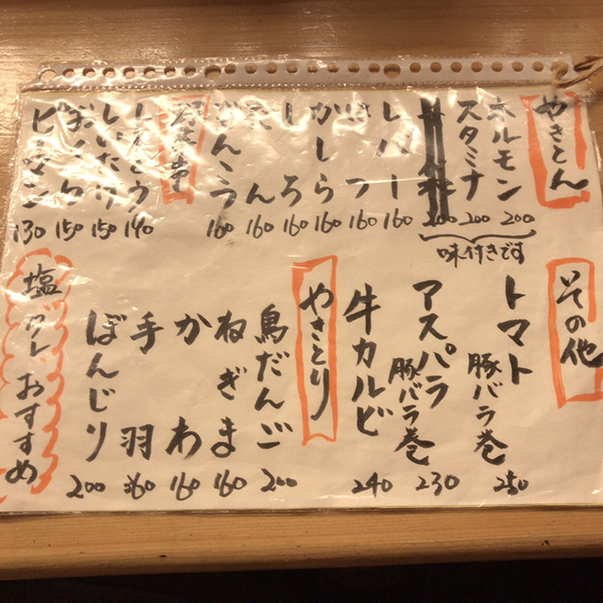 やきとん
ホルモン 200
スタミナ 200
200
味付きです
レバー 160
はつ 160
かしら 160
しろ 160
たん 160
なんこつ 160
野菜串
ししとう 140
しいたけ 150
おくら 150
ピーマン 130
その他
トマト豚バラ巻 250
アスパラ豚バラ巻 230
牛カルビ 240
やきとり
鳥だんご 200
ねぎま 160
かわ 160
手羽 360
ぼんじり 200
塩 タレ おすすめ